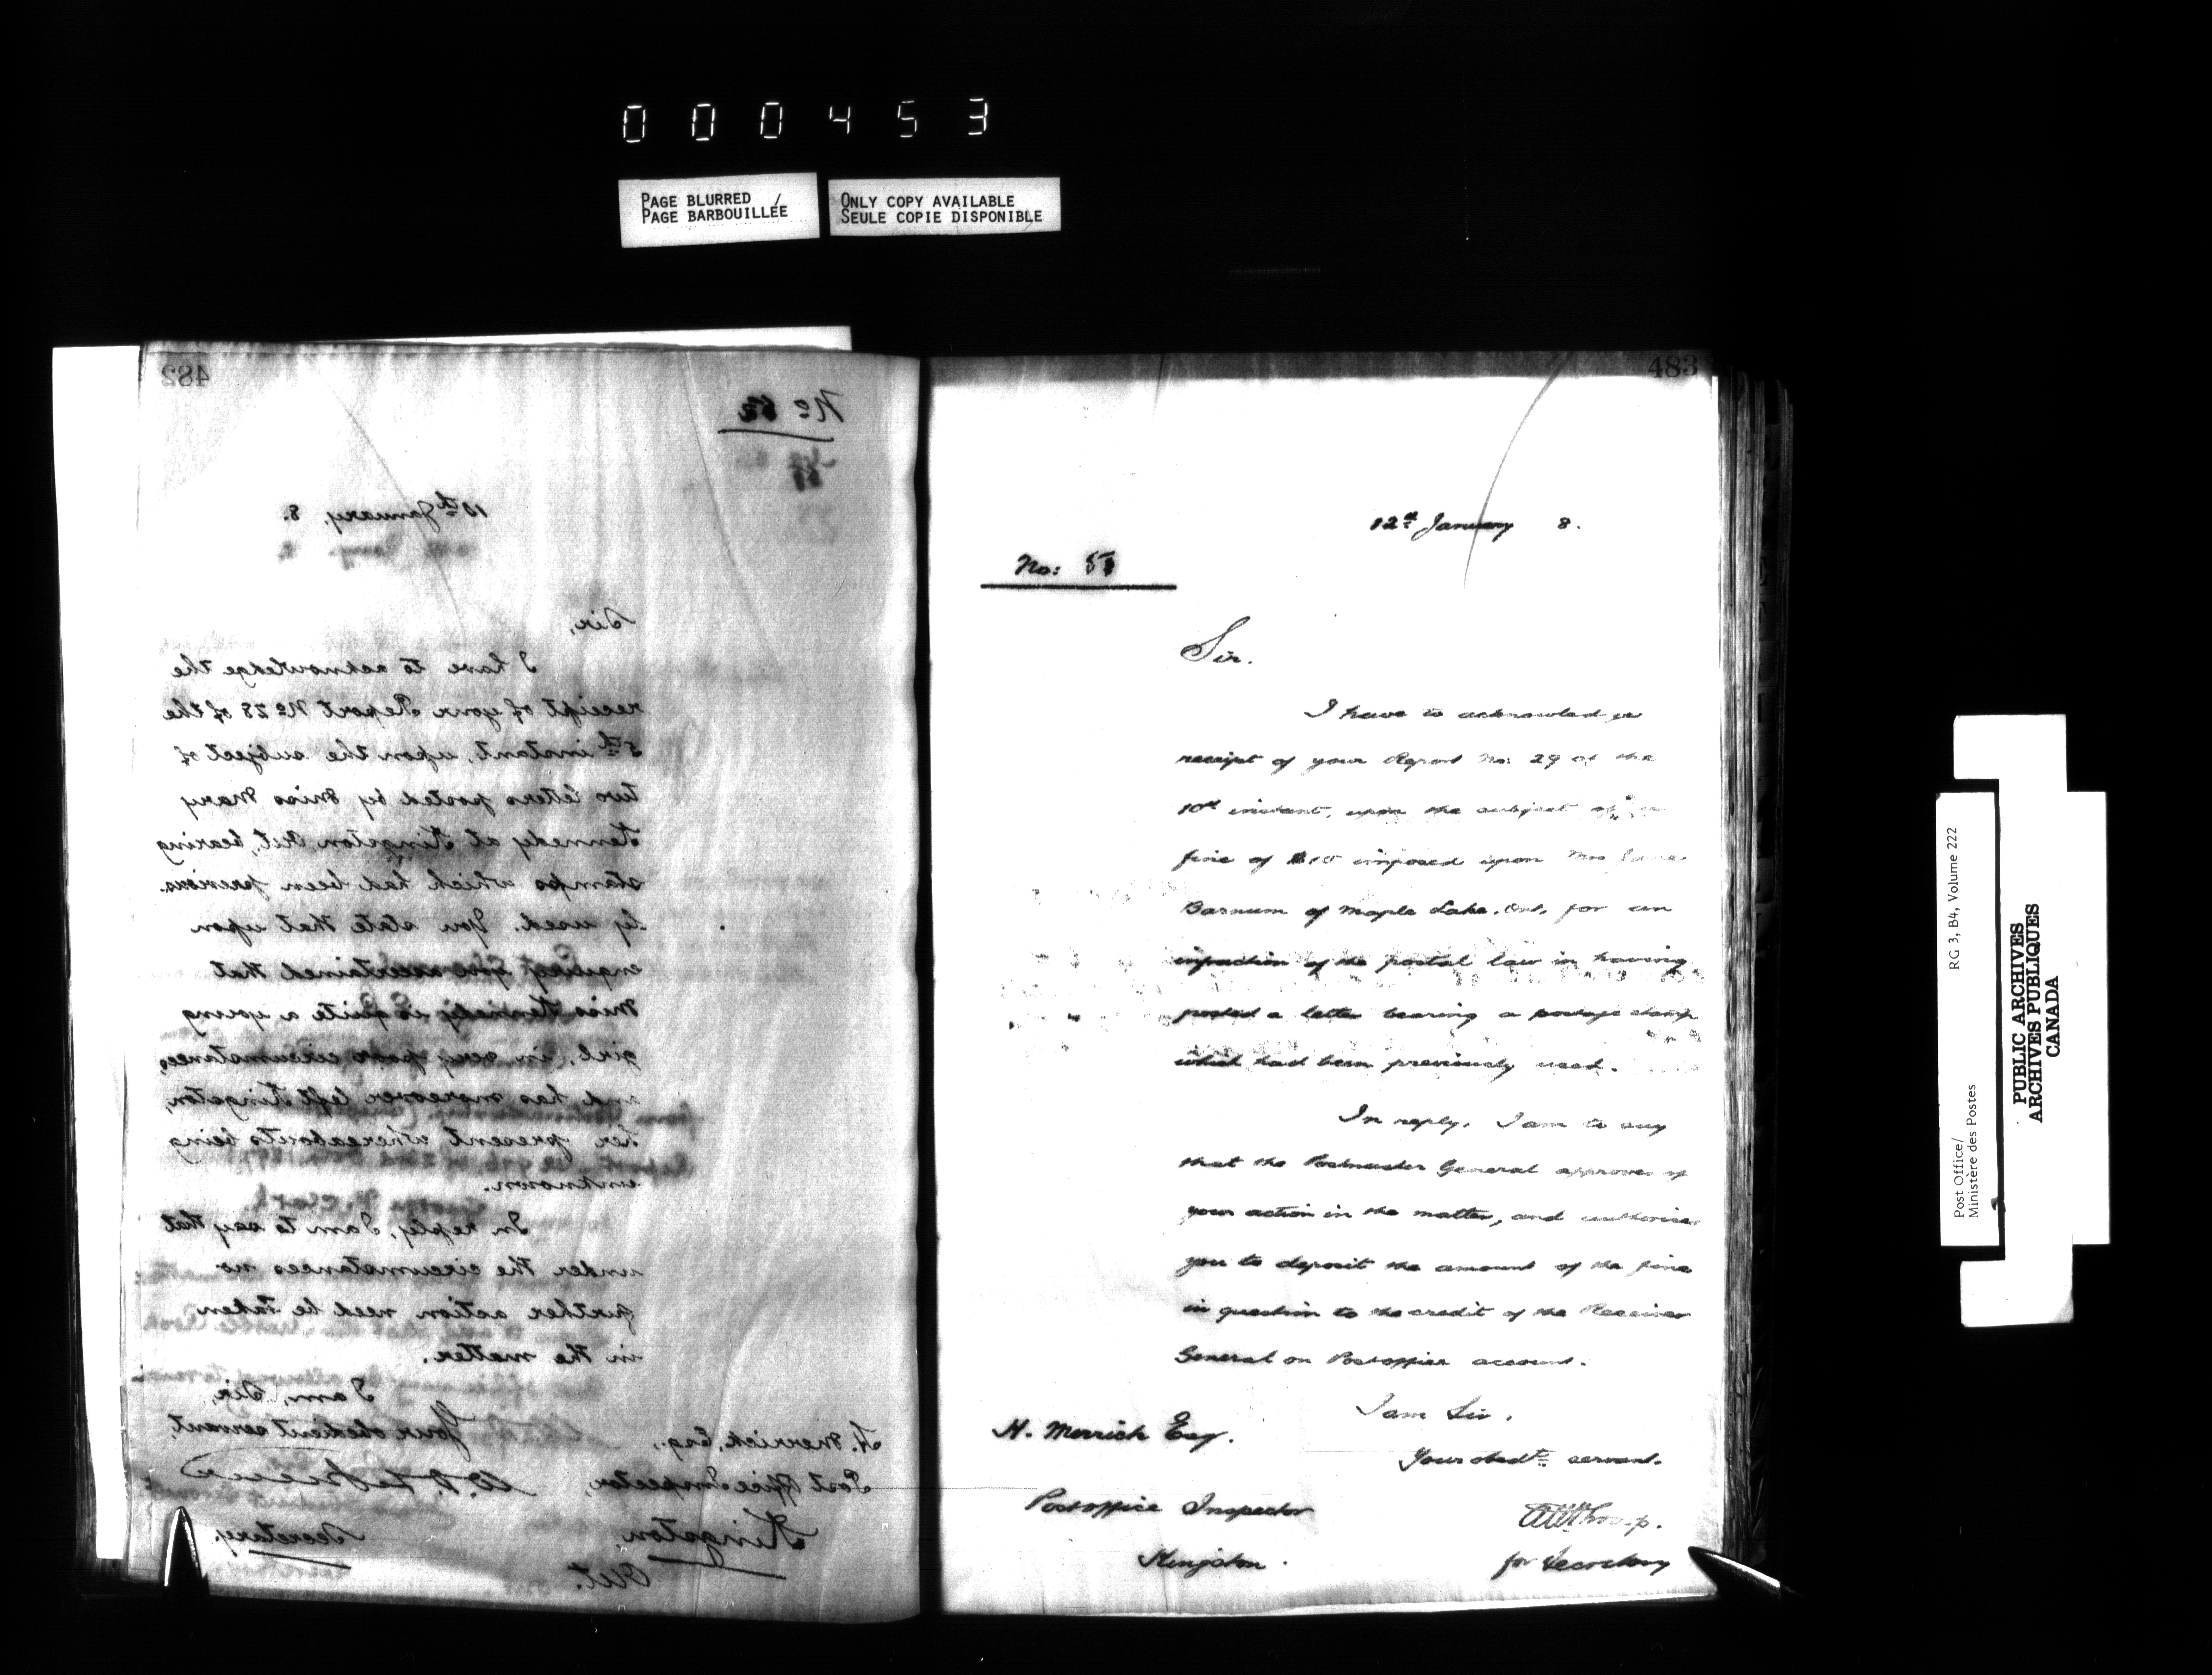 000453
PAGE BLURRED /
PAGE BARBOUILLÉE
ONLY COPY AVAILABLE
SEULE COPIE DISPONIBLE
482
No 52
10th January, 8.
Sir,
I have to acknowledge the
receipt of your Report No 28 of the
5th instant, upon the subject of
two letters posted by Miss Mary
Kennedy at Kingston Ont, bearing
stamps which had been previous-
ly used. You state that upon
enquiry you ascertained that
Miss Kennedy is quite a young
girl, in very poor circumstances,
and has moreover left Kingston,
her present whereabouts being
unknown.
In reply, I am to say that
under the circumstances no
further action need be taken
in the matter.
I am, Sir,
Your obedient servant,
Secretary.
H. Merrick, Esq.,
Post Office Inspector,
Kingston,
Ont.
483
12th January 8.
No: 5
Sir.
I have to acknowledge
receipt of your Report No: 29 of the
10th instant, upon the subject of
fine of $10 imposed upon Mrs Jane
Barnum of Maple Lake, Ont, for an
infraction of the postal law in having
posted a letter bearing a postage stamp
which had been previously used.
In reply, I am to say
that the Postmaster General approves of
your action in the matter, and authorises
you to deposit the amount of the fine
in question to the credit of the Receiver
General on Postoffice account.
I am Sir,
Your obedt servant.
for Secretary
H. Merrick Esq.
Postoffice Inspector
Kingston.
Post Office/
Ministère des Postes
RG 3, B4, Volume 222
PUBLIC ARCHIVES
ARCHIVES PUBLIQUES
CANADA